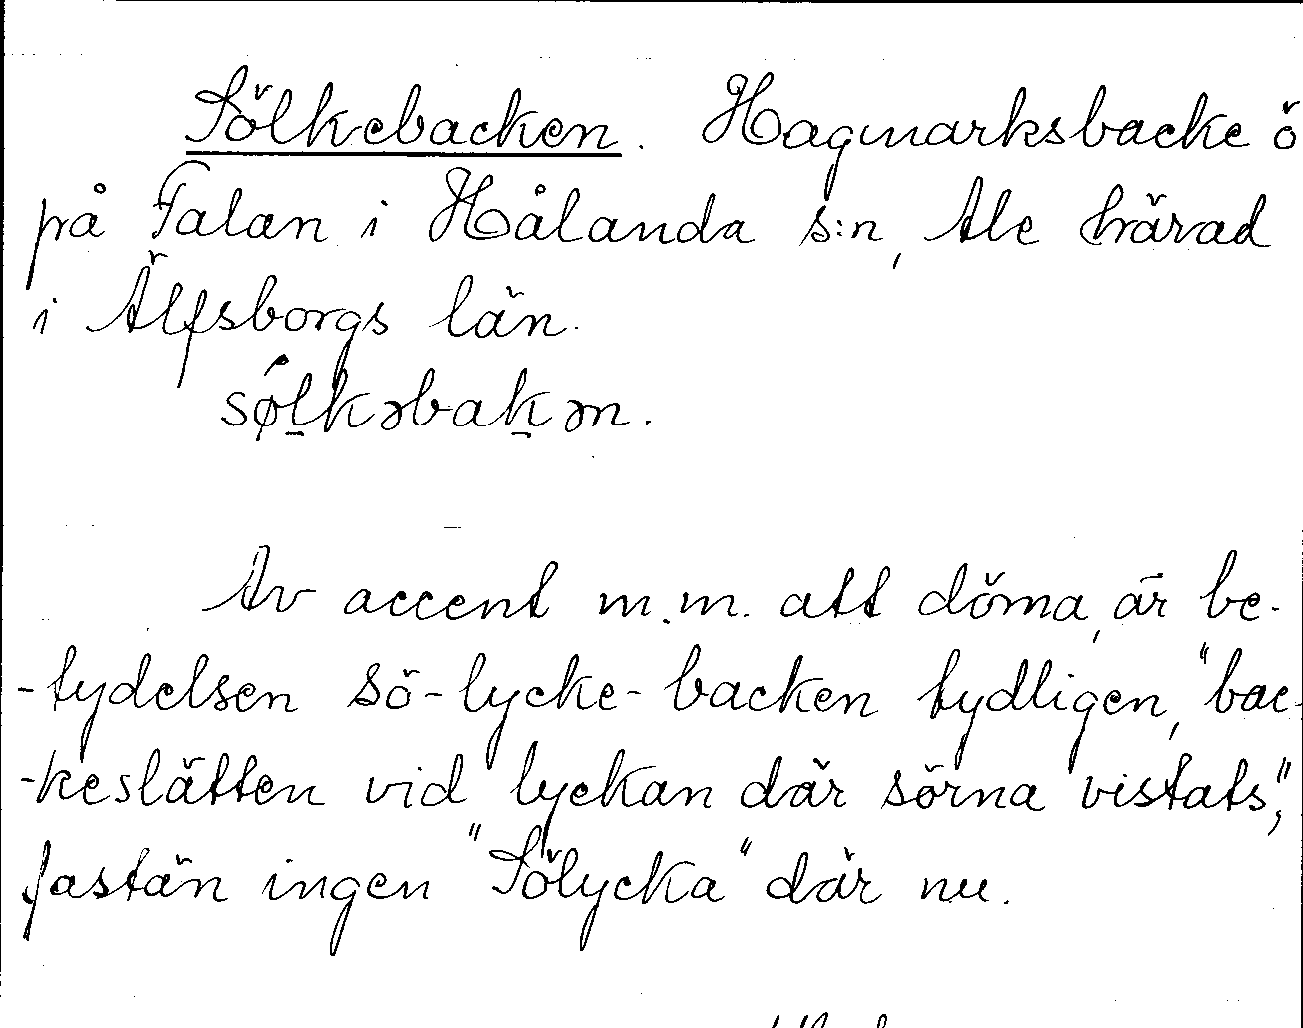 Sölkebacken. Hagmarksbacke ö
på Falan i Hålanda s:n, Ale härad
i Älfsborgs län.
sǿl̲kəbak̲ən.
Av accent m.m. att döma, är be-
-tydelsen sö-lycke-backen tydligen, "bac-
-keslätten vid lyckan där sörna vistats",
fastän ingen "Sölycka" där nu.